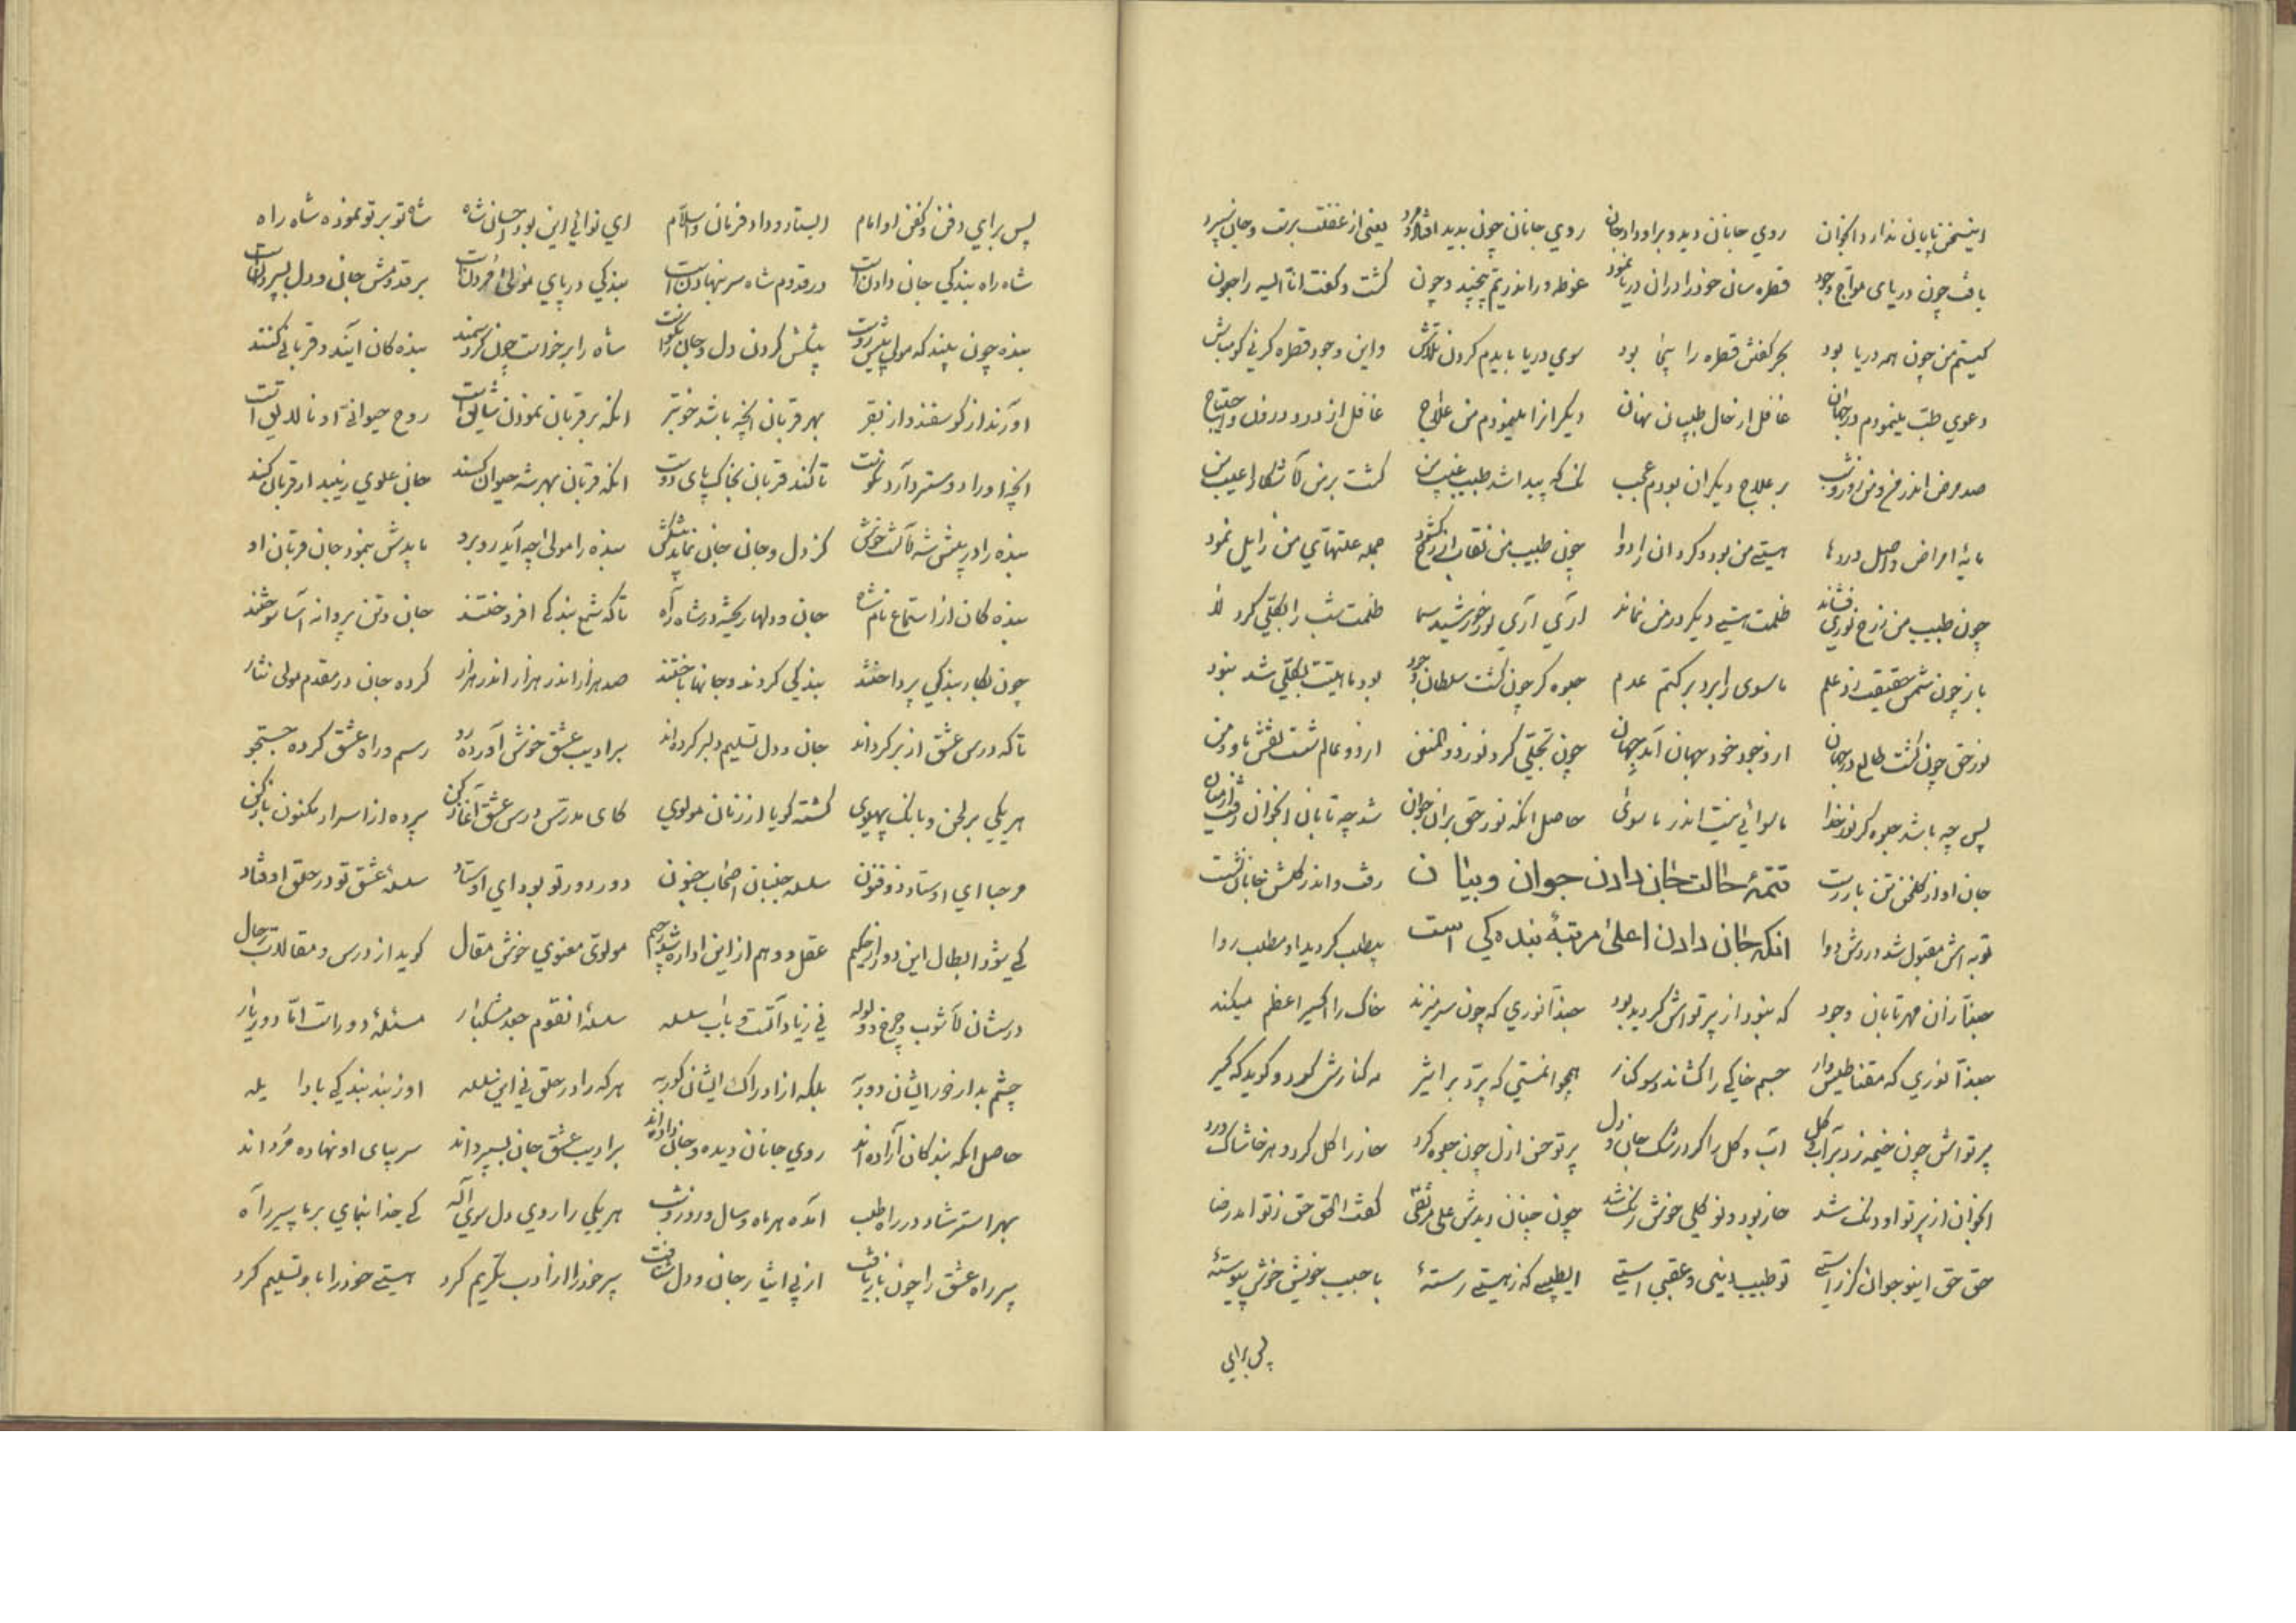 اینسخن پایان ندارد آنجوان روی جانان دید و براو داد جان روی جانان چون بدید افتاد و مرد یعنی از غفلت برست و جان سپرد
یافت چون دریای مواج وجود قطره سان خود را در آن دریا نمود غوطه ور اندر یم بیچند و چون گشت و گفت انا الیه راجعون
کیستم من چون همه دریا بود بحر کفش قطره را پنما بود سوی دریا بایدم کردن تلاش واین وجود قطره کر نی کو مباش
دعوی طب مینمودم در جهان غافل از حال طبیبان نهان دیگرانرا مینمودم من علاج غافل از درد درون و احتیاج
صد مرض اندر من و من روز و شب بر علاج دیگران بودم عجب نک که پیدا شد طبیب غیب بین گشت بر من آشکارا عیب من
مایه امراض و اصل دردها هستی من بود و کرد آن را دوا چون طبیب من نقاب از رخ گشود جمله علتهای من زایل نمود
چون طبیب من ز رخ نوری فشاند ظلمت هستی دیگر در من نماند آری آری نور خورشید سما ظلمت شب را بکلی کرد لا
باز چون شمس حقیقت زد علم ماسوی را برد بر کتم عدم جلوه گر چون گشت سلطان وجود بود ماهیت بکلی شد نبود
نور حق چون گشت طالع در جهان از وجود خود جهان آمد جهان چون تجلی کرد نور ذو المنن از دو عالم شست نقش ما و من
پس چه باشد جلوه گر نور خدا ماسوائی نیست اندر ماسوی حاصل آنکه نور حق بر آن جوان شد چه تابان آنجوان رفت از میان
جان او از گلخن تن باز رست تتمهٔ حالت جان دادن جوان و بیان رفت و اندر گلشن جانان نشست
توبه اش مقبول شد دردش دوا آنکه جان دادن اعلی مرتبهٔ بنده کی است بیطلب گردید او مطلب روا
حبذا زان مهر تابان وجود که نبود از پرتواش گردید بود حبذا نوری که چون سر میزند خاک را اکسیر اعظم میکند
حبذا نوری که مقناطیس وار جسم خاکی را کشاند سو کنار همچو انسی که پرد بر اثیر در کنارش گیرد و گوید که گیر
پرتواش چون خیمه زد بر آب و گل آب و گل را کرد رشک جان و دل پرتو حسن ازل چون جلوه کرد خار را گل کرد و هر خاشاک ورد
آنجوان از پرتو او رنگ شد خار بود و نو گلی خوش رنگ شد چون چنان دیدش علی مرتقی گفت الحق حق ز تو آمد رضا
حق حق اینو جوان گر راستی تو طبیب دینی و عقبی استی ای طبیبی که ز هستی رستهٔ با حبیب خویش خوش پیوستهٔ
پس برای
پس برای دفن و کفن او امام ایستاد و داد فرمان والسلام ای نوائی این بود احسان شاه شاه تو بر تو نموده شاه راه
شاه راه بندگی جان دادن است در قدوم شاه سر بنهادن است بندگی در پای مولی مردن است بر قدومش جان و دل بسپردن است
بنده چون بیند که مولی پیش روست پیشکش کردن دل و جان را نکوست شاه را بر خواست چون گردد سمند بنده کان آیند و قربانی کنند
آورند از گوسفند و از بقر بهر قربان آنچه باشد خوبتر آنکه بر قربان نمودن شایق است روح حیوانی او نا لایق است
آنچه او را در دسترد آرد نکوست تا کند قربان بخاک پای دوست آنکه قربان بهر شه حیوان کند جان علوی زیبد ار قربان کند
بنده را در پیش شه آنست خوش کز دل و جان جان نماید پیشکش بنده را مولی چه آید روبرو بایدش بنمود جان قربان او
بنده کان از استماع نام شاه جان و دلها ریخته در شاه راه تا که شمع بندگی افروختند جان و تن پروانه آسا سوختند
چون بکار بندگی پرداختند بندگی کردند و جانها باختند صد هزار اندر هزار اندر هزار کرده جان در مقدم مولی نثار
تا که درس عشق از بر کرده اند جان و دل تسلیم دلبر کرده اند بر ادیب عشق خوش آورده رو رسم و راه عشق کرده جستجو
هر یکی بر لحن و بانگ پهلوی گشته گویا از زبان مولوی کای مدرس درس عشق آغاز کن پرده از اسرار مکنون باز کن
مرحبا ای اوستاد ذو فنون سلسله جنبان اصحاب جنون دور دور تو بود ای اوستاد سلسلهٔ عشق تو در حلق اوفتاد
کی بود ابطال این دور از حکیم عقل و وهم از این اداره شد رجیم مولوی معنوی خوش مقال گوید از درس و مقالات رجال
درسشان آشوب و چرخ و ولوله نی زیادات است و باب سلسله سلسلهٔ انقوم جعد مشکبار مسئلهٔ دور است اما دور یار
چشم بد از دور ایشان دور به بلکه از ادراک ایشان کور به هر که را در حلق نی این سلسله او ز بند بندگی بادا یله
حاصل آنکه بندگان آزاده اند روی جانان دیده و جان داده اند بر ادیب عشق جان بسپرده اند سر بپای او نهاده مرده اند
بهر استرشاد در راه طلب آمده هر ماه و سال و روز و شب هر یکی را روی دل سوی اله کی خدا بنمای بر ما پیر راه
پیر راه عشق را چون باز یافت از پی ایثار جان و دل شتافت پیر خود را از ادب تکریم کرد هستی خود را باو تسلیم کرد